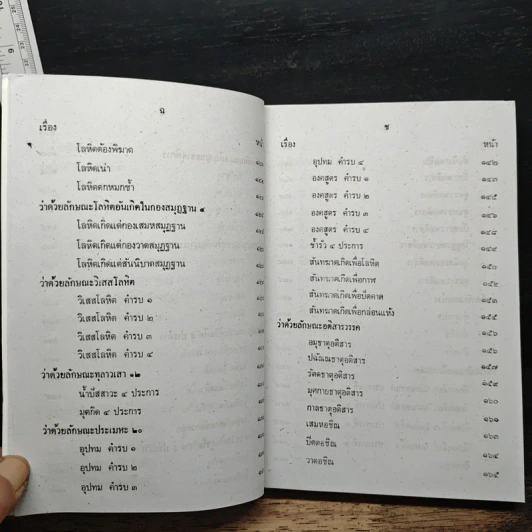 ฉ
เรื่อง
โลหิตต้องพิฆาต
โลหิตเน่า
โลหิตตกหมกช้ำ
ว่าด้วยลักษณะโลหิตอันเกิดในกองสมุฏฐาน ๔
โลหิตเกิดแต่กองเสมหสมุฏฐาน
โลหิตเกิดแต่กองวาตสมุฏฐาน
โลหิตเกิดแต่สันนิบาตสมุฏฐาน
ว่าด้วยลักษณะวิเสสโลหิต
วิเสสโลหิต คำรบ ๑
วิเสสโลหิต คำรบ ๒
วิเสสโลหิต คำรบ ๓
วิเสสโลหิต คำรบ ๔
ว่าด้วยลักษณะทุลาวสา ๑๒
น้ำปัสสาวะ ๔ ประการ
มุตกิด ๔ ประการ
ว่าด้วยลักษณะประเมหะ ๒๐
อุปทม คำรบ ๑
อุปทม คำรบ ๒
อุปทม คำรบ ๓
ช
เรื่อง หน้า
อุปทม คำรบ ๔ ๑๔๒
องคสูตร คำรบ ๑ ๑๔๓
องคสูตร คำรบ ๒ ๑๔๕
องคสูตร คำรบ ๓ ๑๔๖
องคสูตร คำรบ ๔ ๑๔๘
ช้ำรั่ว ๔ ประการ ๑๔๙
สันทฆาตเกิดเพื่อโลหิต ๑๕๐
สันทฆาตเกิดเพื่อกาฬ
สันทฆาตเกิดเพื่อปัตคาด ๑๕๓
สันทฆาตเกิดเพื่อกล่อนแห้ง ๑๕๕
ว่าด้วยลักษณะอติสารวรรค ๑๕๖
อมุธาตุอติสาร ๑๕๖
ปฉัณณธาตุอติสาร ๑๕๗
รัตตธาตุอติสาร ๑๕๙
มุศกายธาตุอติสาร ๑๖๐
กาลธาตุอติสาร ๑๖๑
เสมหอชิณ ๑๖๓
ปิตตอชิณ ๑๖๔
วาตอชิณ ๑๖๕